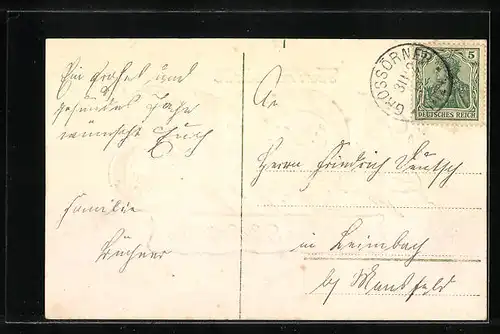 Ein frohes und
gesundes Jahr
wünscht Euch
Familie
Büchner
An
Herrn Friedrich Deutsch
in Leimbach
b/ Mansfeld
GROSSÖRNER
31.12
5
DEUTSCHES REICH